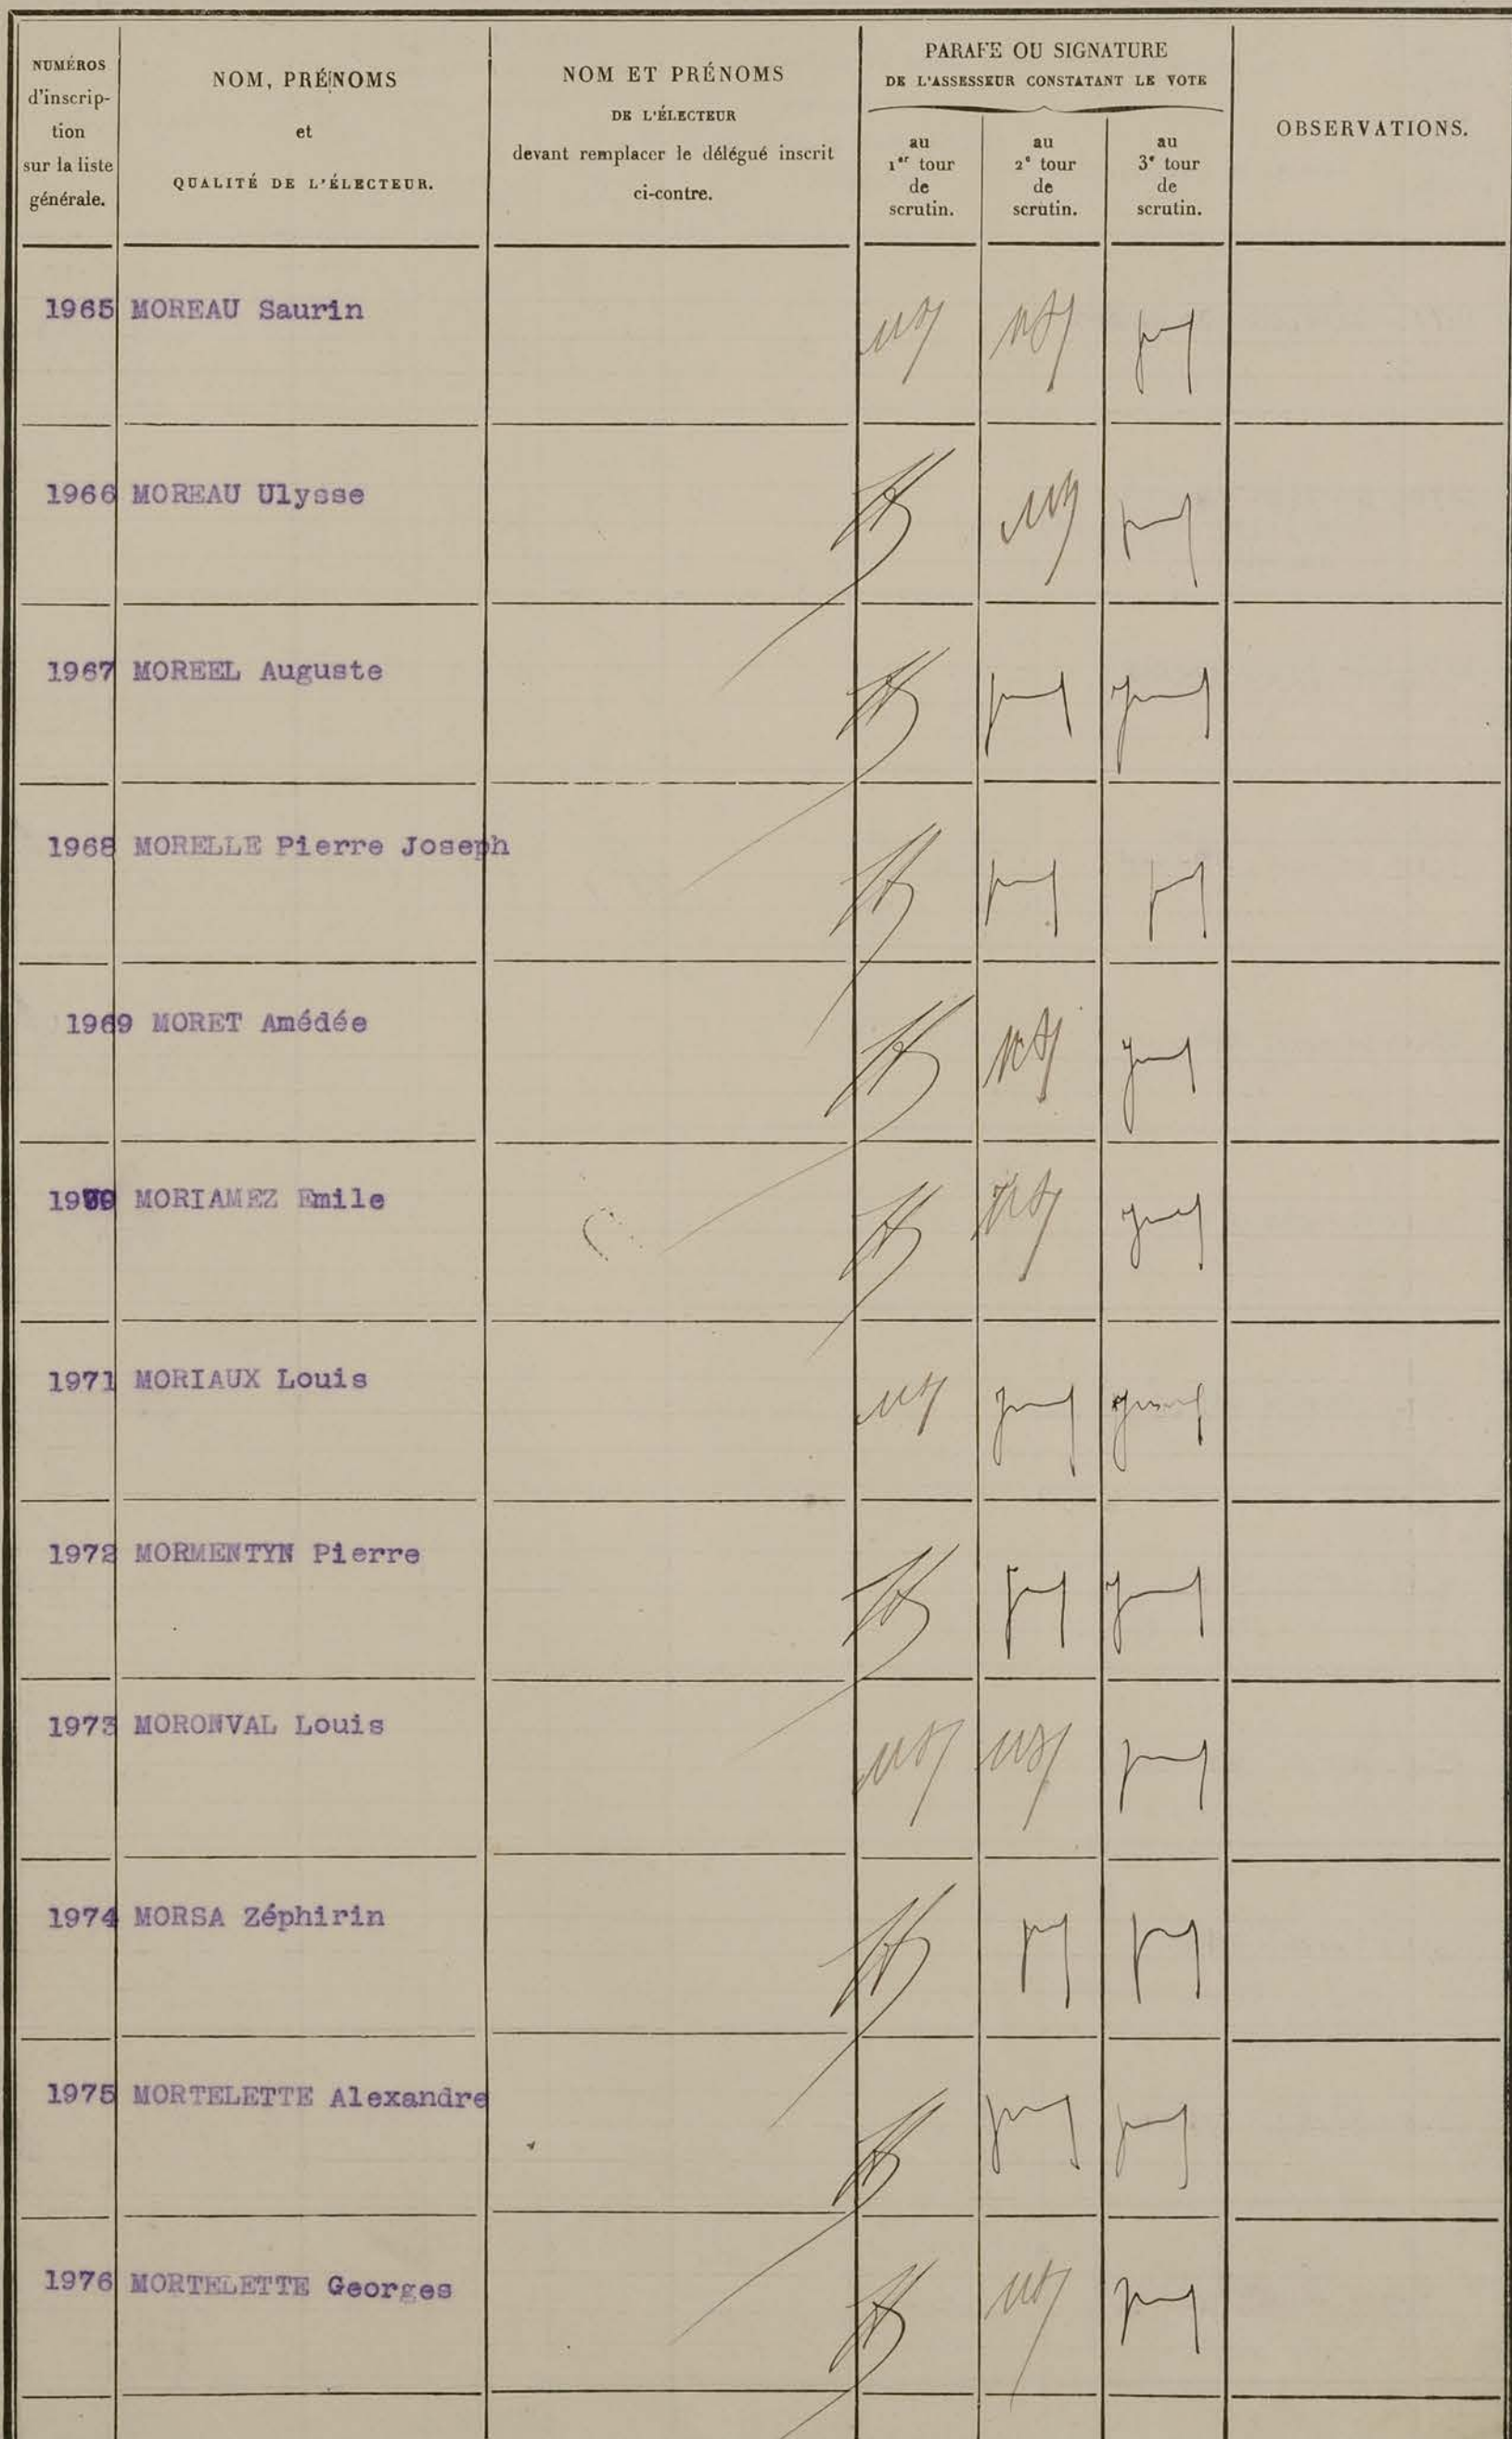 NUMÉROS
d'inscrip-
tion
sur la liste
générale.
NOM, PRÉNOMS
et
QUALITÉ DE L'ÉLECTEUR.
NOM ET PRÉNOMS
DE L'ÉLECTEUR
devant remplacer le délégué inscrit
ci-contre.
PARAFE OU SIGNATURE
DE L'ASSESSEUR CONSTATANT LE VOTE
au
1er tour
de
scrutin.
au
2e tour
de
scrutin.
au
3e tour
de
scrutin.
OBSERVATIONS.
1965 MOREAU Saurin
1966 MOREAU Ulysse
1967 MOREEL Auguste
1968 MORELLE Pierre Joseph
1969 MORET Amédée
1970 MORIAMEZ Emile
1971 MORIAUX Louis
1972 MORMENTYN Pierre
1973 MORONVAL Louis
1974 MORSA Zéphirin
1975 MORTELETTE Alexandre
1976 MORTELETTE Georges